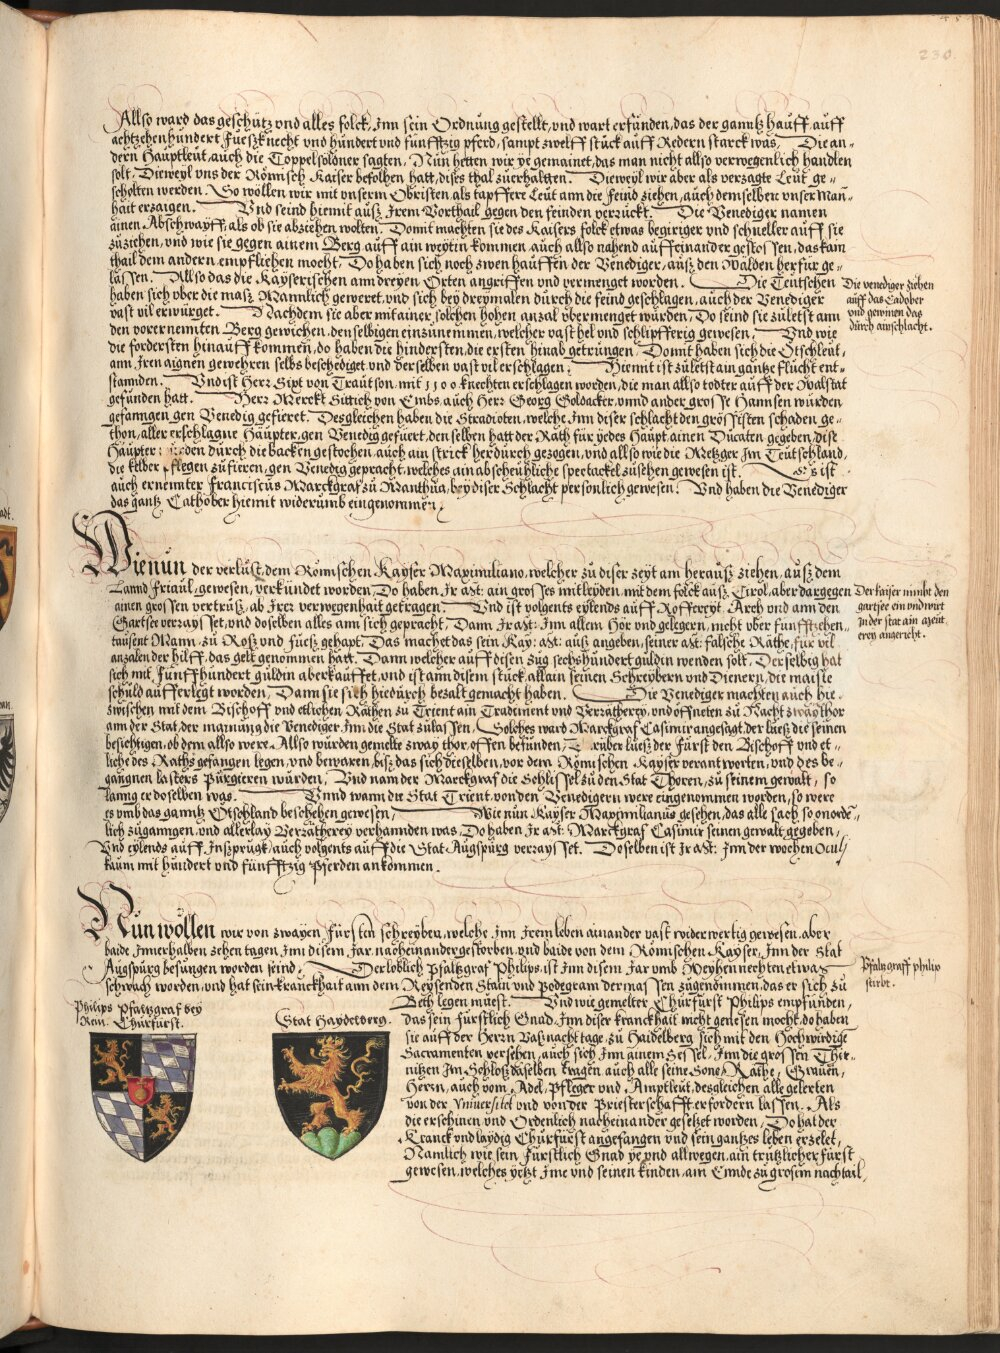 230.
Allso ward das geschütz vnd alles folck, Inn sein Ordnung gestellt, vnd wart erfunden, das der ganntz hauff, auff
achtzehenhundert Fueszknecht vnd hundert vnd funfftzig pferd, sampt zwelff stuck auff Redern starck was, Die an=
dern Hauptleut, auch die Toppelsoldner sagten, Nun hetten wir ye gemainet, das man nicht allso verwegenlich handlen
solt, Dieweyl vns der Römisch Kaiser befolhen hatt, dises thal zuerhaltten. Dieweyl wir aber als verzagte Leut ge=
scholten werden. So wöllen wir mit vnserm Obristen als tapffere Leut ann die feind ziehen, auch demselben vnser Man=
hait erzaigen. Vnd seind hiemit ausz Irem Vorthail gegen den feinden verruckt. Die Venediger namen
ainen Abschwayff, als ob sie abziehen wolten. Domit machten sie des Kaisers folck etwas begiriger vnd schneller auff sie
zuziehen, vnd wie sie gegen ainem Berg auff ain weytin kommen, auch allso nahend auff einander gestossen, das kam
thail dem andern empfliehen mocht, Do haben sich noch zwen hauffen der Venediger, ausz den Wälden herfür ge=
lassen. Allso das die Kayserischen ann dreyen Orten angriffen vnd vermenget worden. Die Teutschen
haben sich vber die masz Mannlich geweret, vnd sich bey dreymalen durch die feind geschlagen, auch der Venediger
vast vil erwürget. Nachdem sie aber mit ainer solchen hohen anzal vbermenget wurden, Do seind sie zuletst ann
den vorernennten Berg gewichen, den selbigen einzunemmen, welcher vast hel vnd schlipfferig gewesen, Vnd wie
die fordersten hinauff kommen, do haben die hindersten, die ersten hinab getrungen, Domit haben sich die Etschleut,
ann Iren aignen gewehren selbs beschediget vnd derselben vast vil erschlagen. Hiemit ist zuletst ain gantze flucht ent=
stannden. Vnd ist Herr Sixt von Trautson, mit 1100 knechten erschlagen worden, die man allso todter auff der Walstat
gefunden hatt. Herr Merckt Sittich von Embs, auch Herr Georg Goldacker, vnnd ander grosse Hannsen wurden
gefanngen gen Venedig gefieret. Desgleichen haben die Stradioten, welche Inn diser schlacht den grössisten schaden ge=
thon, aller erschlagne Häupter, gen Venedig gefüert, den selben hatt der Rath für yedes Haupt, ainen Ducaten gegeben, dise
Häupter durch die backen gestochen, auch ain strick herdurch gezogen, vnd allso wie die Metzger Im Teutschland,
die kelber pflegen zufieren, gen Venedig gepracht, welches ain abscheuhliche spectackel zusehen gewesen ist. Es ist
auch ernennter Franciscus Marckgraf zu Manthua, bey diser Schlacht personlich gewesen. Vnd haben die Venediger
das gantz Cathöber hiemit widerumb eingenommen.
Die venediger ziehen
auff das Cadober
vnd gewinen das
durch ain schlacht.
Wie nun der verlust, dem Römischen Kayser Maximiliano, welcher zu diser zeyt am herausz ziehen, ausz dem
Lannd Friaul, gewesen, verkündet worden, Do haben Ir Mt: ain grosses mitleyden mit dem folck ausz Tirol, aber dargegen
ainen grossen vertrusz, ab Irer verwegenhait getragen. Vnd ist volgents eylends auff Roffereyt, Arch vnd ann den
Gartsee verraysset, vnd doselben alles ann sich gepracht, Dann Ir Mt: Inn allem Hör vnd gelegern, meht vber funfftzehen=
tausent Mann, zu Rosz vnd fuesz gehapt. Das machet das sein Kay: Mt: ausz angeben, seiner Mt: falsche Räthe, für vil
anzalen der hilff, das gelt genommen hatt. Dann welcher auff disen zug sechshundert guldin wenden solt, Derselbig hat
sich mit funffhundert guldin aberkauffet, vnd ist ann disem stuck, allain seinen Schreybern vnd Dienern, die maiste
schuld aufferlegt worden, Dann sie sich hiedurch bezalt gemacht haben. Die Venediger machten auch hie=
zwischen mit dem Bischoff vnd etlichen Räthen zu Trient ain Tradiment vnd Verrätherey, vnd öffneten zu Nacht zway thor
ann der Stat, der mainung die Venediger Inn die Stat zulassen, Solches ward Marckgraf Casimir angesagt, der liesz die seinen
besichtigen, ob dem allso were. Allso wurden gemelte zway thor, offen befunden, Darüber liesz der Fürst den Bischoff vnd et=
liche des Raths gefangen legen, vnd bewaren, bisz das sich dieselben, vor dem Römischen Kayser verantworten, vnd des be=
ganngnen lasters Purgieren wurden, Vnd nam der Marckgraf die Schlissel zu den Stat Thoren, zu seinem gewalt, so
lanng er doselben was. Vnnd wann die Stat Trient, von den Venedigern were eingenommen worden, so were
es vmb das ganntz Etschland beschehen gewesen, Wie nun Kayser Maximilianus gesehen, das alle sach so onorden=
lich zuganngen, vnd allerlay Verrätherey verhannden was, Do haben Ir Mt: Marckgraf Casimir seinen gewalt gegeben,
Vnd eylends auff Inszprugk, auch volgents auff die Stat Augspurg verraysset. Doselben ist Ir Mt: Inn der wochen Oculj
kaum mit hundert vnd funfftzig Pferden ankommen.
Der kaiser nimbt den
gartsee ein vnd wirt
In der stat ain meüt
erey angericht.
Nun wöllen wir von zwayen Fürsten schreyben, welche Inn Irem leben ainander vast widerwertig gewesen, aber
baide Innerhalben zehen tagen, Inn disem Jar, nacheinander gestorben, vnd baide von dem Römischen Kayser, Inn der Stat
Augspurg besungen worden seind. Der löblich Pfaltzgraf Philips, ist Inn disem Jar vmb Weyhennechten etwas
schwach worden, vnd hat sein kranckhait ann dem Reysenden Stain vnd Podegram dermassen zugenommen, das er sich zu
Beth legen muest. Vnd wie gemelter Churfürst Philips empfunden,
das sein fürstlich Gnad, Inn diser kranckhait nicht genesen mocht, do haben
sie auff der Herrn Vasznacht tage, zu Haidelberg sich mit den Hochwirdige
Sacramenten versehen, auch sich Inn ainem Sessel, Inn die grossen Thür=
nitzen Im Schlosz daselben tragen, auch alle seine Sone, Räthe, Grauen,
Herrn, auch vom Adel, Pfleger vnd Amptleut, desgleichen alle gelerten
von der Vniuersitet vnd von der Priesterschafft erfordern lassen. Als
die erschinen vnd Ordenlich nacheinander gesetzet worden, Do hat der
Kranck vnd laydig Churfürst angefangen vnd sein gantzes leben erzelet,
Namlich wie sein Fürstlich Gnad ye vnd allwegen, ain trutzlicher fürst
gewesen, welches yetzt Ime vnd seinen kinden, am Ennde zu grosem nachtail,
Pfaltzgraff philip
stirbt.
Philips Pfaltzgraf bey
Rein. Churfürst.
Stat Haydelberg.